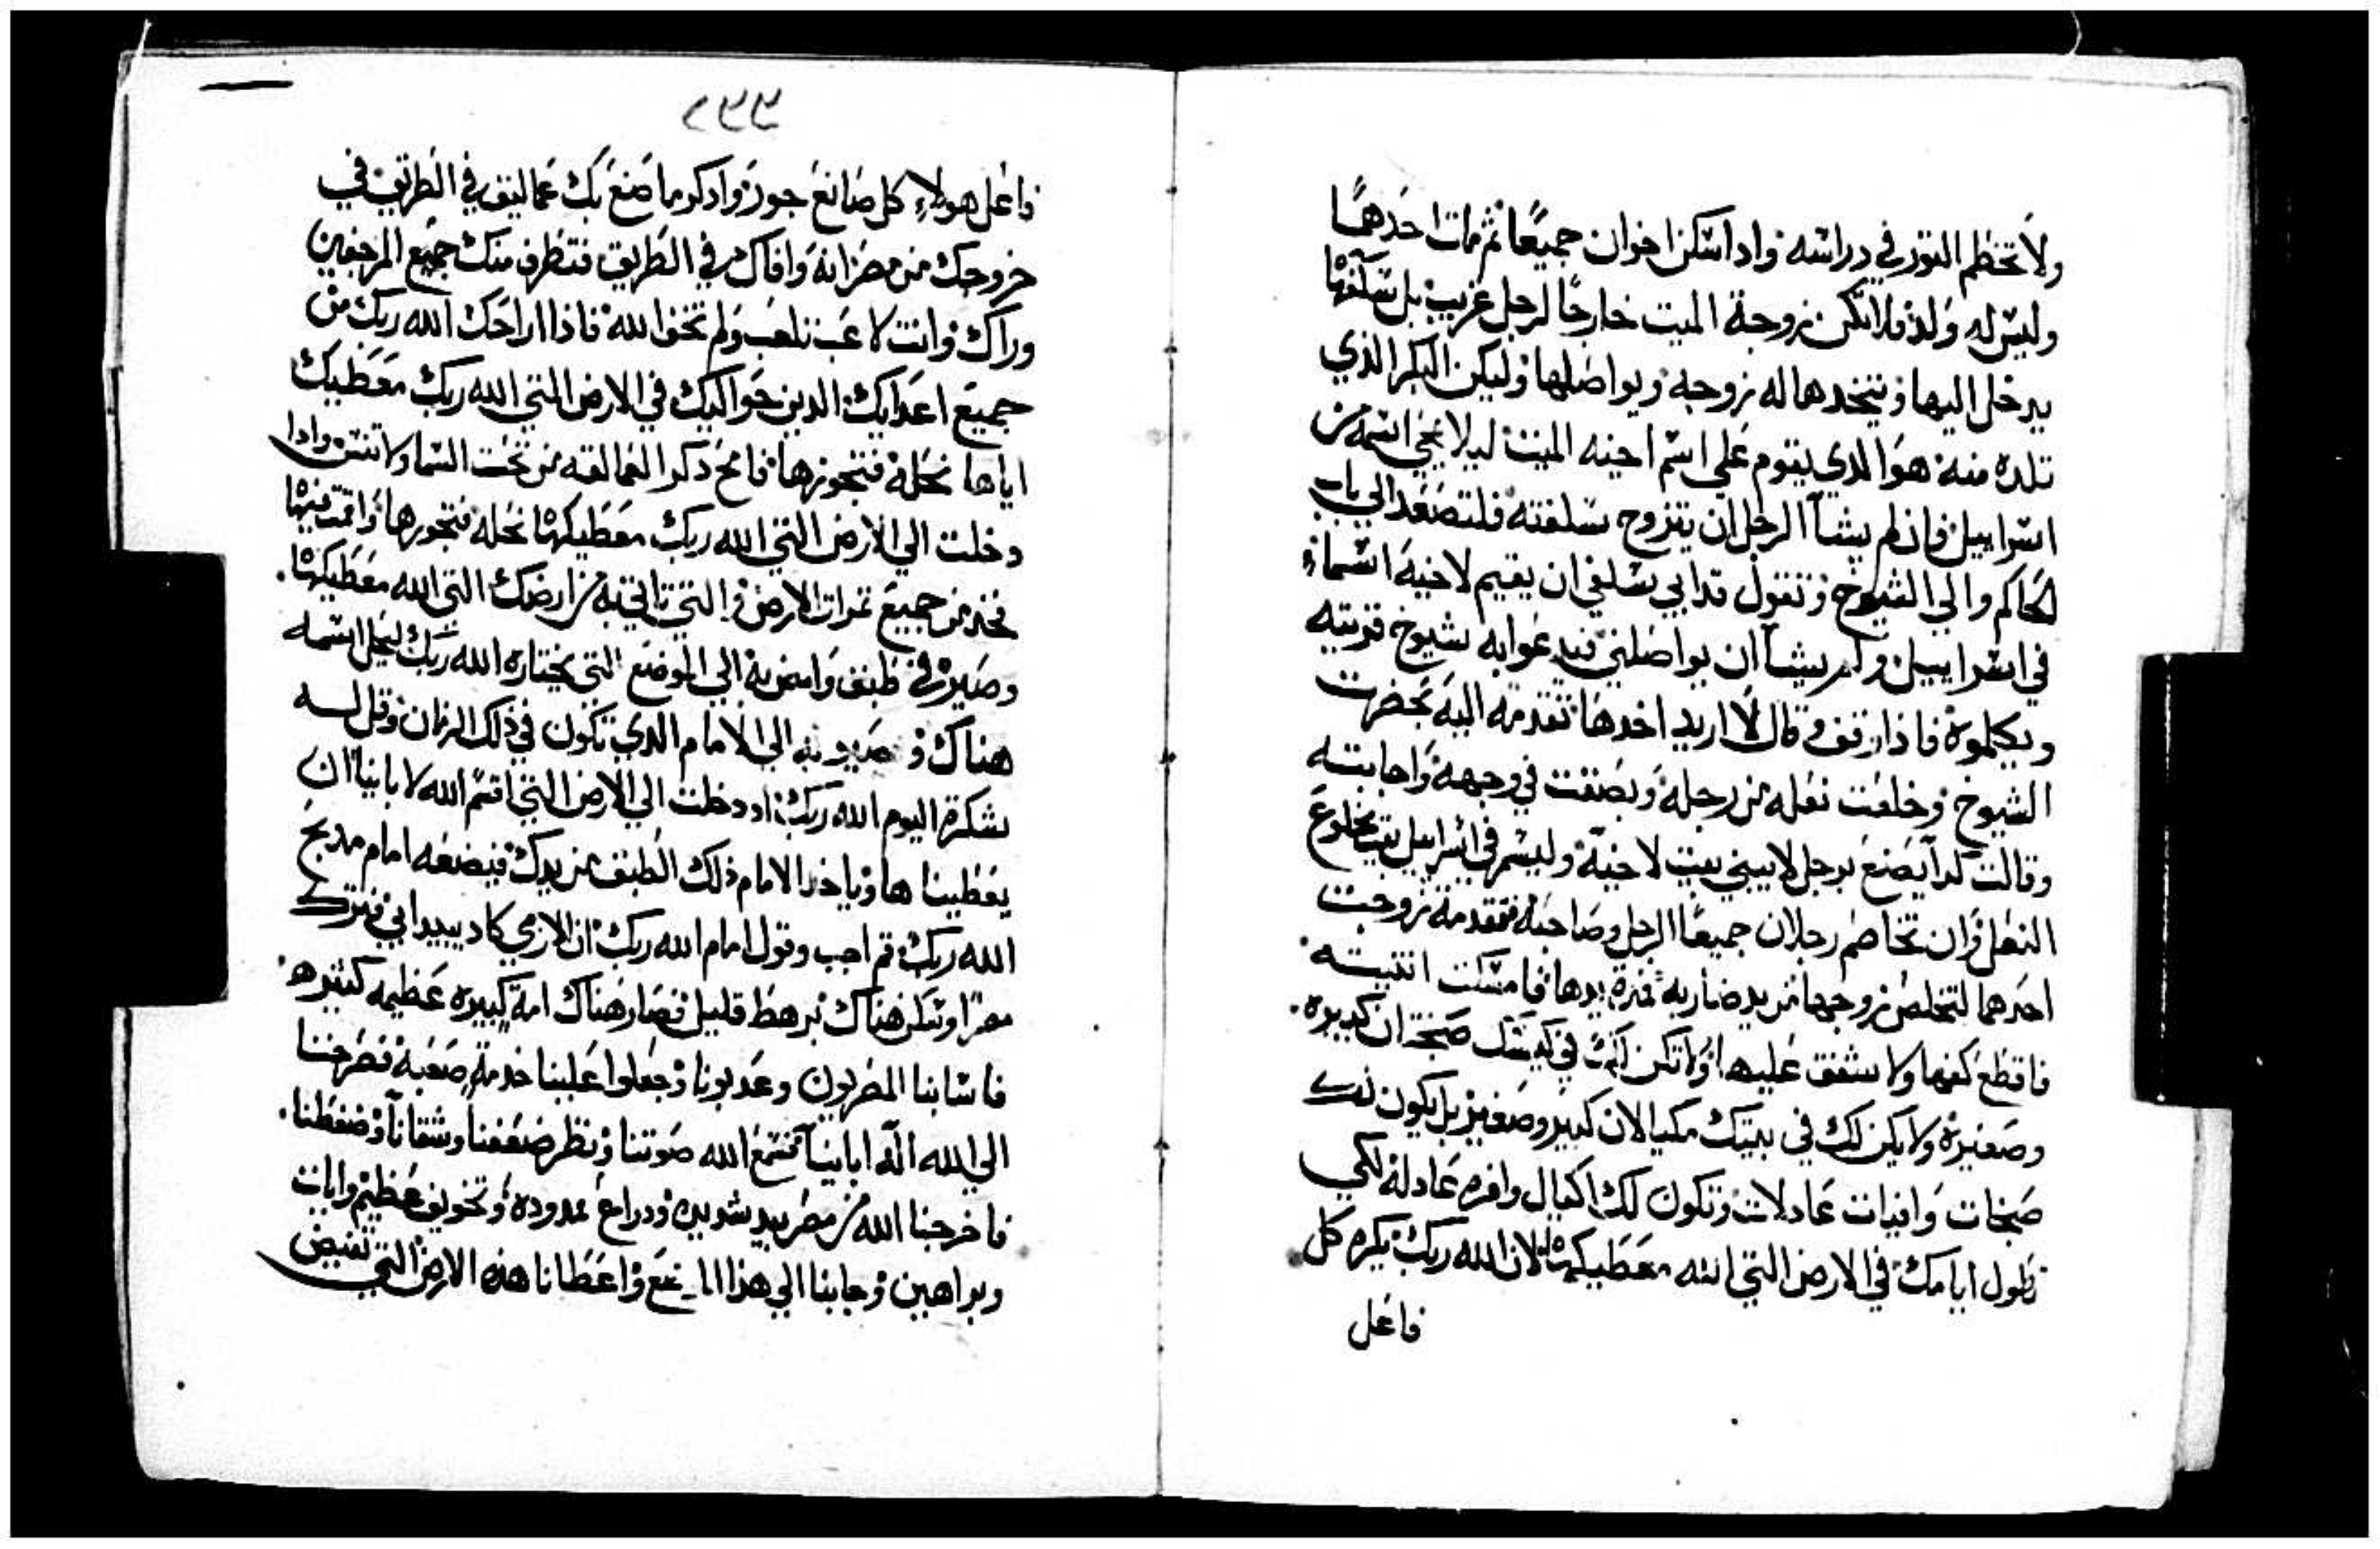 ولا تخطم التور في دراسه واداسكن اخوان جميعًا ثم مات احدهما
وليس له ولد فلا تكن زوجة الميت خارجًا لرجل غريب بل سلفها
يدخل اليها ويتخدها له زوجه ويواصلها وليكن البكر الذي
تلده منه هو الدي يقوم علي اسم اخيه الميت ليلا يمحي اسمه من
اسراييل فان لم يشآ الرجل ان يتزوج سلفته فلتصعد الي باب
الحاكم والي الشيوخ وتقول قد ابي سلفي ان يقيم لاخيه اسماء
في اسراييل ولم يشآ ان يواصلني فيدعوا به شيوخ قريته
ويكلموه فاذا وقف وقال لا اريد اخدها تتقدم اليه بحضرت
الشيوخ وخلعت نعله من رجله وبصقت في وجهه واجابته
وقالت كدا يصنع برجل لا يبني بيت لاخيه وليسم في اسراييل بيت مخلوع
النعل وان تخاصم رجلان جميعًا الرجل وصاحبه فتقدمة زوجت
احدهما لتخلص زوجها من يد ضاربه فمدة يدها فامسكت انتيته
فاقطع كفها ولا تشفق عليها ولا تكن لك في كيسك صنجتان كبيره
وصغيرة ولا يكن لك في بيتك مكيالان كبير وصغير بل يكون لك
صنجات وافيات عادلات وتكون لك اكيال وافره عادلة لكي
تطول ايامك في الارض التي الله معطيكها لان الله ربك يكره كل
فاعل
٢٩٩
فاعل هولاء كل صانع جور واذكر ما صنع بك عماليق في الطريق في
خروجك من مصر انه وافاك في الطريق فتطرف منك جميع المرجفين
وراك وانت لاغب تلعب ولم تخف الله فاذا اراحك الله ربك من
جميع اعدايك الدين حواليك في الارض التي الله ربك معطيك
اياها نحلة فتجوزها فامح ذكر العمالقه من تحت السما ولا تنس وادا
دخلت الي الارض التي الله ربك معطيكها نحله فتجوزها واقمت فيها
فخد من جميع تمرات الارض التي تاتي به من ارضك التي الله معطيكها
وصيره في طبق وامض به الي الموضع التي يختاره الله ربك ليحل اسمه
هناك وصير به الي الامام الدي يكون في ذلك الزمان وقل له
شكرة اليوم الله ربك اد دخلت الي الارض التي اقسم الله لابايناً ان
يعطينا ها وياخذ الامام ذلك الطبق من يدك فيضعه امام مدبح
الله ربك تم اجب وقول امام الله ربك ان الارمي كاد يبيد ابي فترك
مصرًا وسكن هناك برهط قليل فصار هناك امة كبيره عظيمه كتيره
فاسا بنا المصريون وعدبونا وجعلوا علينا خدمة صعبة فصرخنا
الي الله اله اباينآ فسمع الله صوتنا ونظر ضعفنا وشقانآ وضغطنا
فاخرجنا الله من مصر بيد شديده ودراع ممدوده وتخويف عظيم وايات
وبراهين وجابنا الي هذا الموضع واعطانا هذه الارض التي تفيض